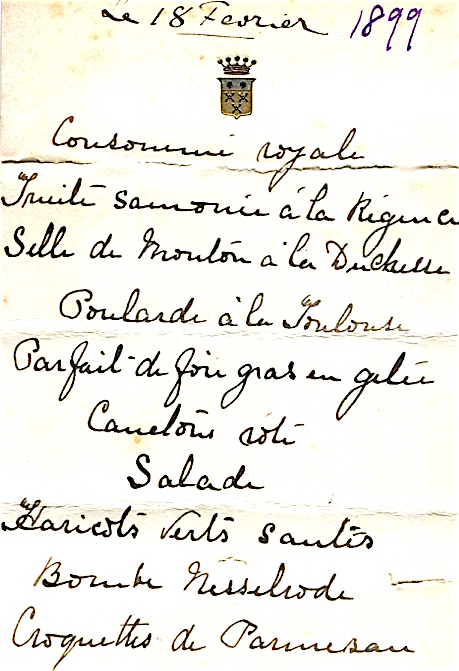 Le 18 Fevrier 1899
Consommé royale
Truite saumonée à la Régence
Selle de Mouton à la Duchesse
Poularde à la Toulouse
Parfait de foie gras en gelée
Canetons roti
Salade
Haricots verts sautés
Bombe Nesselrode
Croquettes de Parmesan